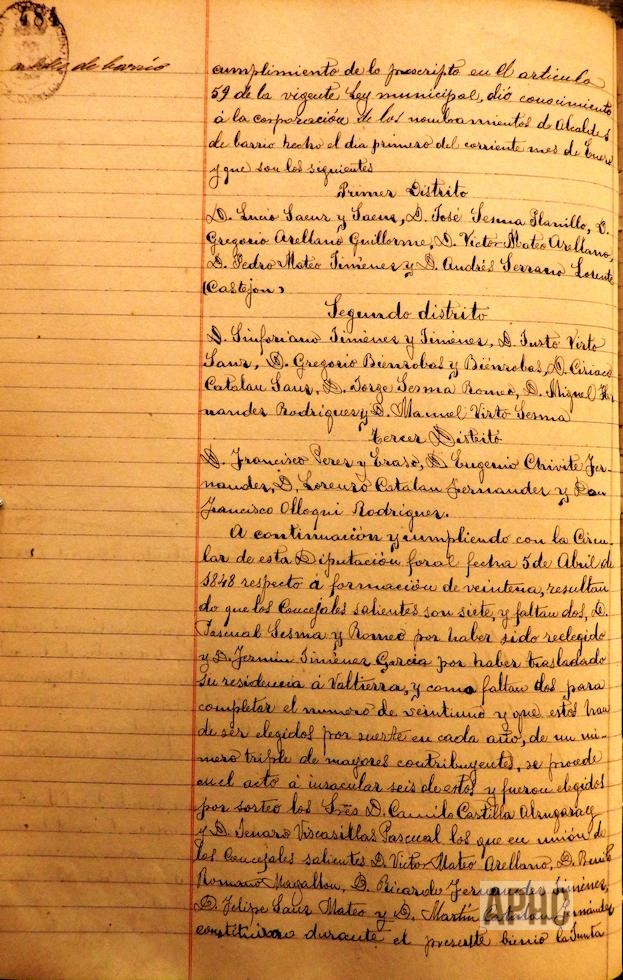 484
alcaldes de barrio
cumplimiento de lo prescripto en el articulo
59 de la vigente Ley municipal, dio conocimiento
á la corporación de los nombramientos de Alcaldes
de barrio hecho el dia primero del corriente mes de Enero
y que son los siguientes
Primer Distrito
D. Lucio Saenz y Saenz, D. José Sesma Planillo, D.
Gregorio Arellano Guillorme, D. Victor Mateo Arellano,
D. Pedro Mateo Jiménez y D. Andrés Serrano Lorente
(Castejon)
Segundo distrito
D. Sinforiano Jiménez y Jiménez, D. Justo Virto
Sanz, D. Gregorio Bienzobas y Bienzobas, D. Ciriaco
Catalan Sanz, D. Jorge Sesma Romeo, D. Miguel Her
nandez Rodriguez y D. Manuel Virto Sesma
Tercer Distrito
D. Francisco Perez y Eraso, D. Eugenio Chivite Fer-
nandez, D. Lorenzo Catalan Fernandez y Don
Francisco Olloqui Rodriguez.
A continuación y cumpliendo con la Circu-
lar de esta Diputación foral fecha 5 de Abril de
1848 respecto á formación de veintena, resultan
do que los Concejales salientes son siete, y faltan dos, D.
Pascual Sesma y Romeo por haber sido reelegido
y D. Fermin Jiménez Garcia por haber trasladado
su residencia á Valtierra, y como faltan dos para
completar el numero de veintiuno y que estos han
de ser elegidos por suerte en cada año, de un nú-
mero triple de mayores contribuyentes, se procede
en el acto á insacular seis de estos y fueron elegidos
por sorteo los Sres D. Camilo Castilla Alzugaray
y D. Jenaro Viscasillas Pascual los que en unión de
los Concejales salientes D. Victor Mateo Arellano, D. Benito
Romano Magallon, D. Ricardo Fernandez Jiménez,
D. Felipe Sanz Mateo y D. Martín Catalan Fernández
constituirán durante el presente bienio la Junta
APHC